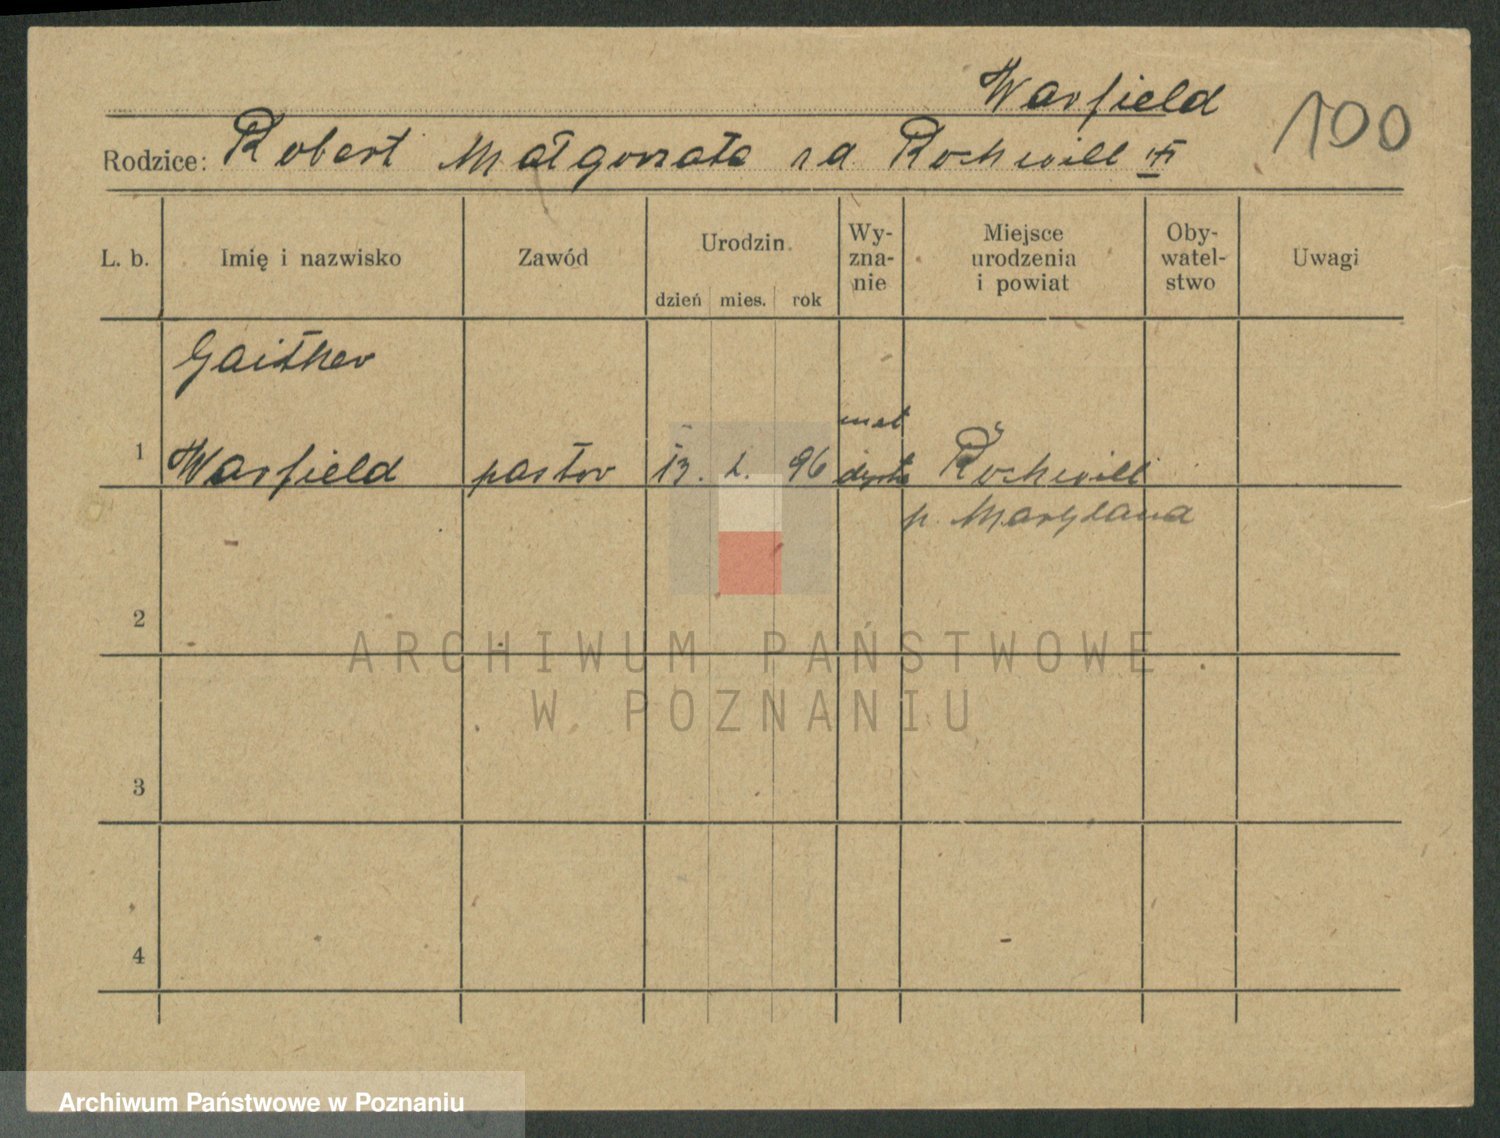 Warfield
100
Rodzice: Robert Małgorzata
L. b. Imię i nazwisko Zawód Urodzin dzień mies. rok Wy-zna-nie Miejsce urodzenia i powiat Oby-watel-stwo Uwagi
Gaither
1 Warfield pastor 13. 2. 96 met dysta Rockwill
p. Maryland
2
3
4
ARCHIWUM PAŃSTWOWE
W POZNANIU
Archiwum Państwowe w Poznaniu